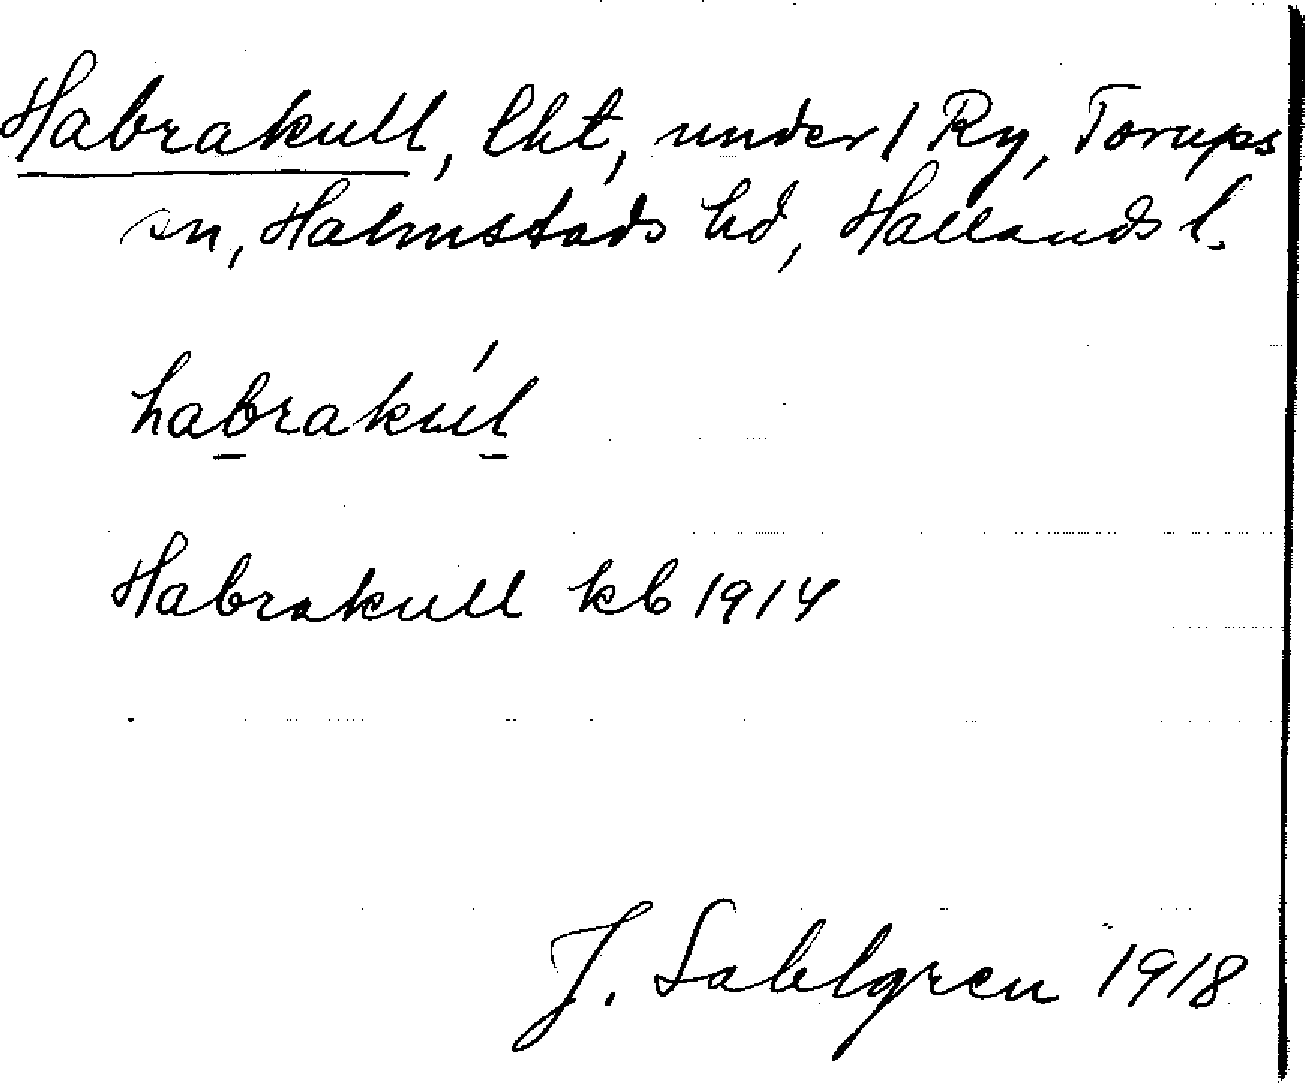 Habrakull, lht, under 1 Ry, Torups
sn, Halmstads hd, Hallands l.
habrakúl
Habrakull kb 1914
J. Sahlgren 1918